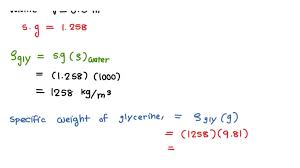 s.g = 1.258
ρgly = s.g (ρ)water
= (1.258) (1000)
= 1258 kg/m³
specific weight of glycerine, = ρgly (g)
= (1258) (9.81)
=